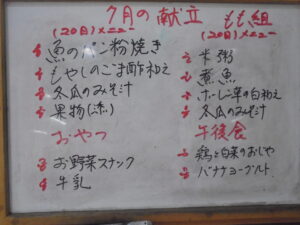 7月の献立
(20日)メニュー
魚のパン粉焼き
もやしのごま酢和え
冬瓜のみそ汁
果物(漆)
おやつ
お野菜スナック
牛乳
もも組
(20日)メニュー
米粥
煮魚
ほうれん草の白和え
冬瓜のみそ汁
午後食
鶏と白菜のおじや
バナナヨーグルト